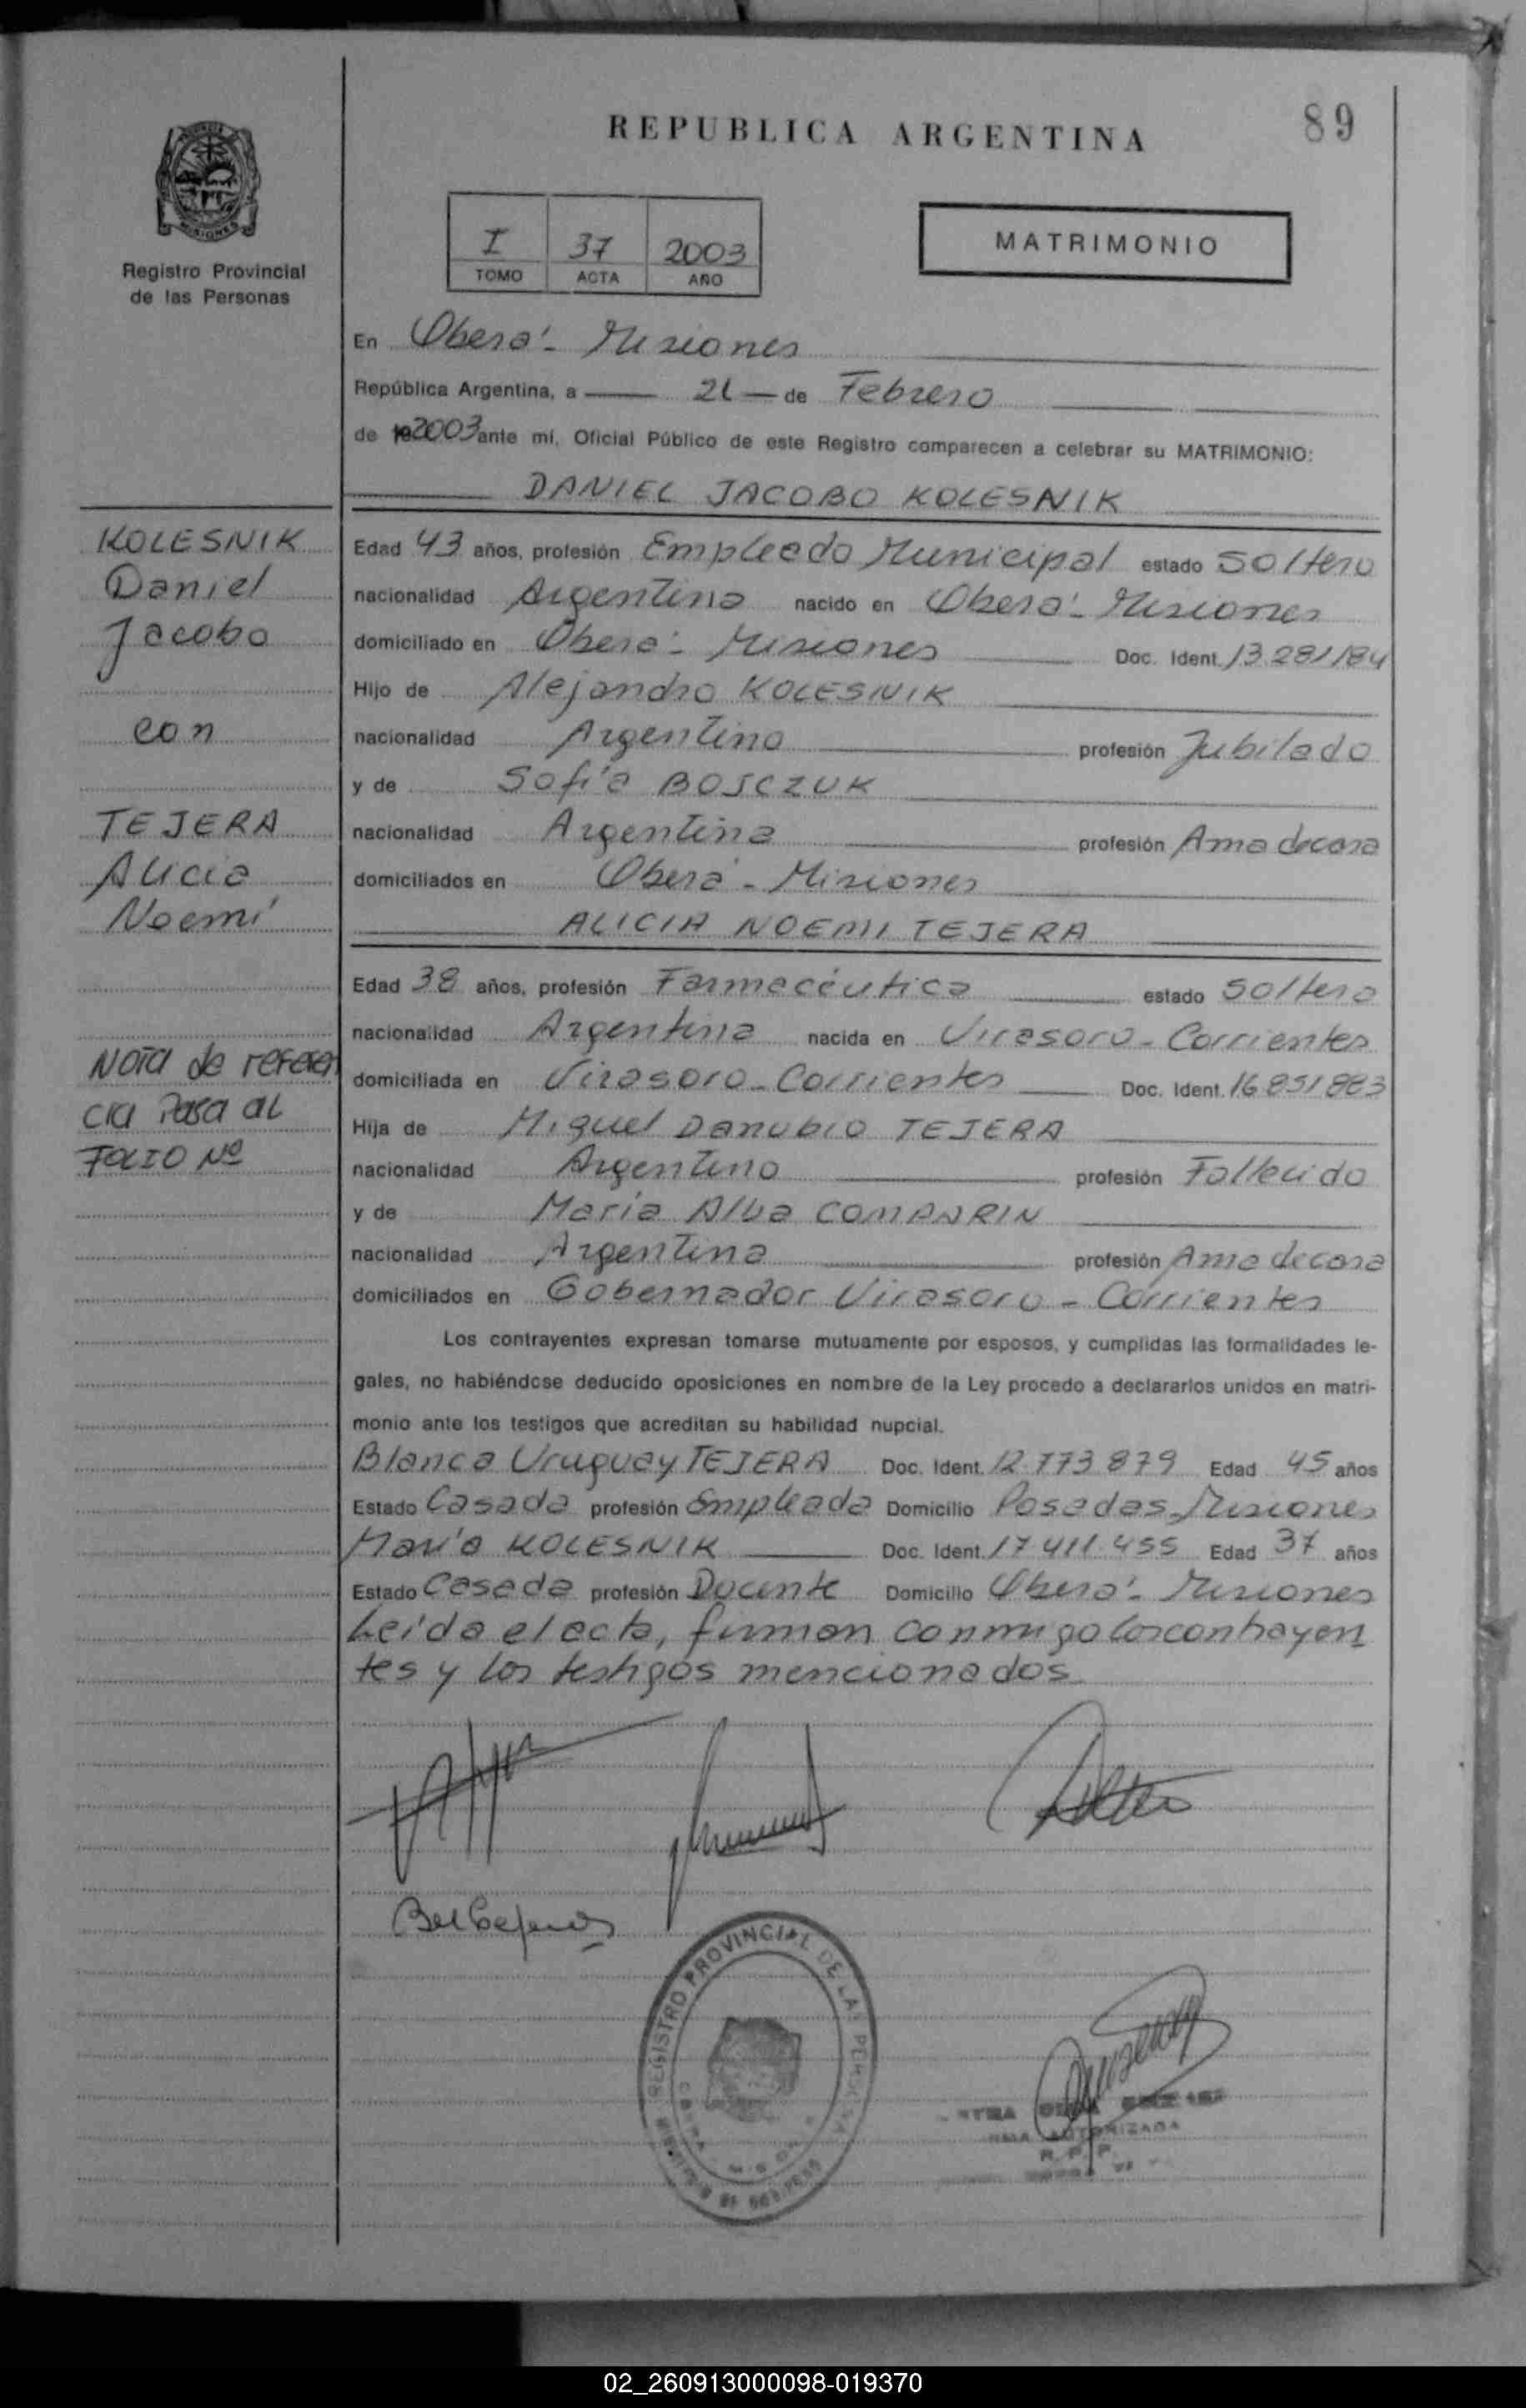 REPUBLICA ARGENTINA
89
Registro Provincial
de las Personas
I 37 2003
TOMO ACTA AÑO
MATRIMONIO
En Oberá - Misiones
República Argentina, a 21 de Febrero
de 2003 ante mí, Oficial Público de este Registro comparecen a celebrar su MATRIMONIO:
DANIEL JACOBO KOLESNIK
KOLESNIK
Daniel
Jacobo
con
TEJERA
Alicia
Noemí
Nota de referen
cia Pasa al
FOLIO Nº
Edad 43 años, profesión Empleado Municipal estado Soltero
nacionalidad Argentina nacido en Oberá - Misiones
domiciliado en Oberá - Misiones Doc. Ident. 13.281184
Hijo de Alejandro KOLESNIK
nacionalidad Argentino profesión Jubilado
y de Sofía BOJCZUK
nacionalidad Argentina profesión Ama de casa
domiciliados en Oberá - Misiones
ALICIA NOEMI TEJERA
Edad 38 años, profesión Farmacéutica estado Soltera
nacionalidad Argentina nacida en Virasoro - Corrientes
domiciliada en Virasoro - Corrientes Doc. Ident. 16 851 883
Hija de Miguel Danubio TEJERA
nacionalidad Argentino profesión Fallecido
y de María Alba COMPARIN
nacionalidad Argentina profesión Ama de casa
domiciliados en Gobernador Virasoro - Corrientes
Los contrayentes expresan tomarse mutuamente por esposos, y cumplidas las formalidades le-
gales, no habiéndose deducido oposiciones en nombre de la Ley procedo a declararlos unidos en matri-
monio ante los testigos que acreditan su habilidad nupcial.
Blanca Uruguay TEJERA Doc. Ident. 12.773.879 Edad 45 años
Estado Casada profesión Empleada Domicilio Posadas - Misiones
María KOLESNIK Doc. Ident. 17 411 455 Edad 37 años
Estado Casada profesión Docente Domicilio Oberá - Misiones
Leída el acta, firman conmigo los contrayen
tes y los testigos mencionados
REGISTRO PROVINCIAL DE LAS PERSONAS
AUTORIZADA
R. P. P.
02_260913000098-019370